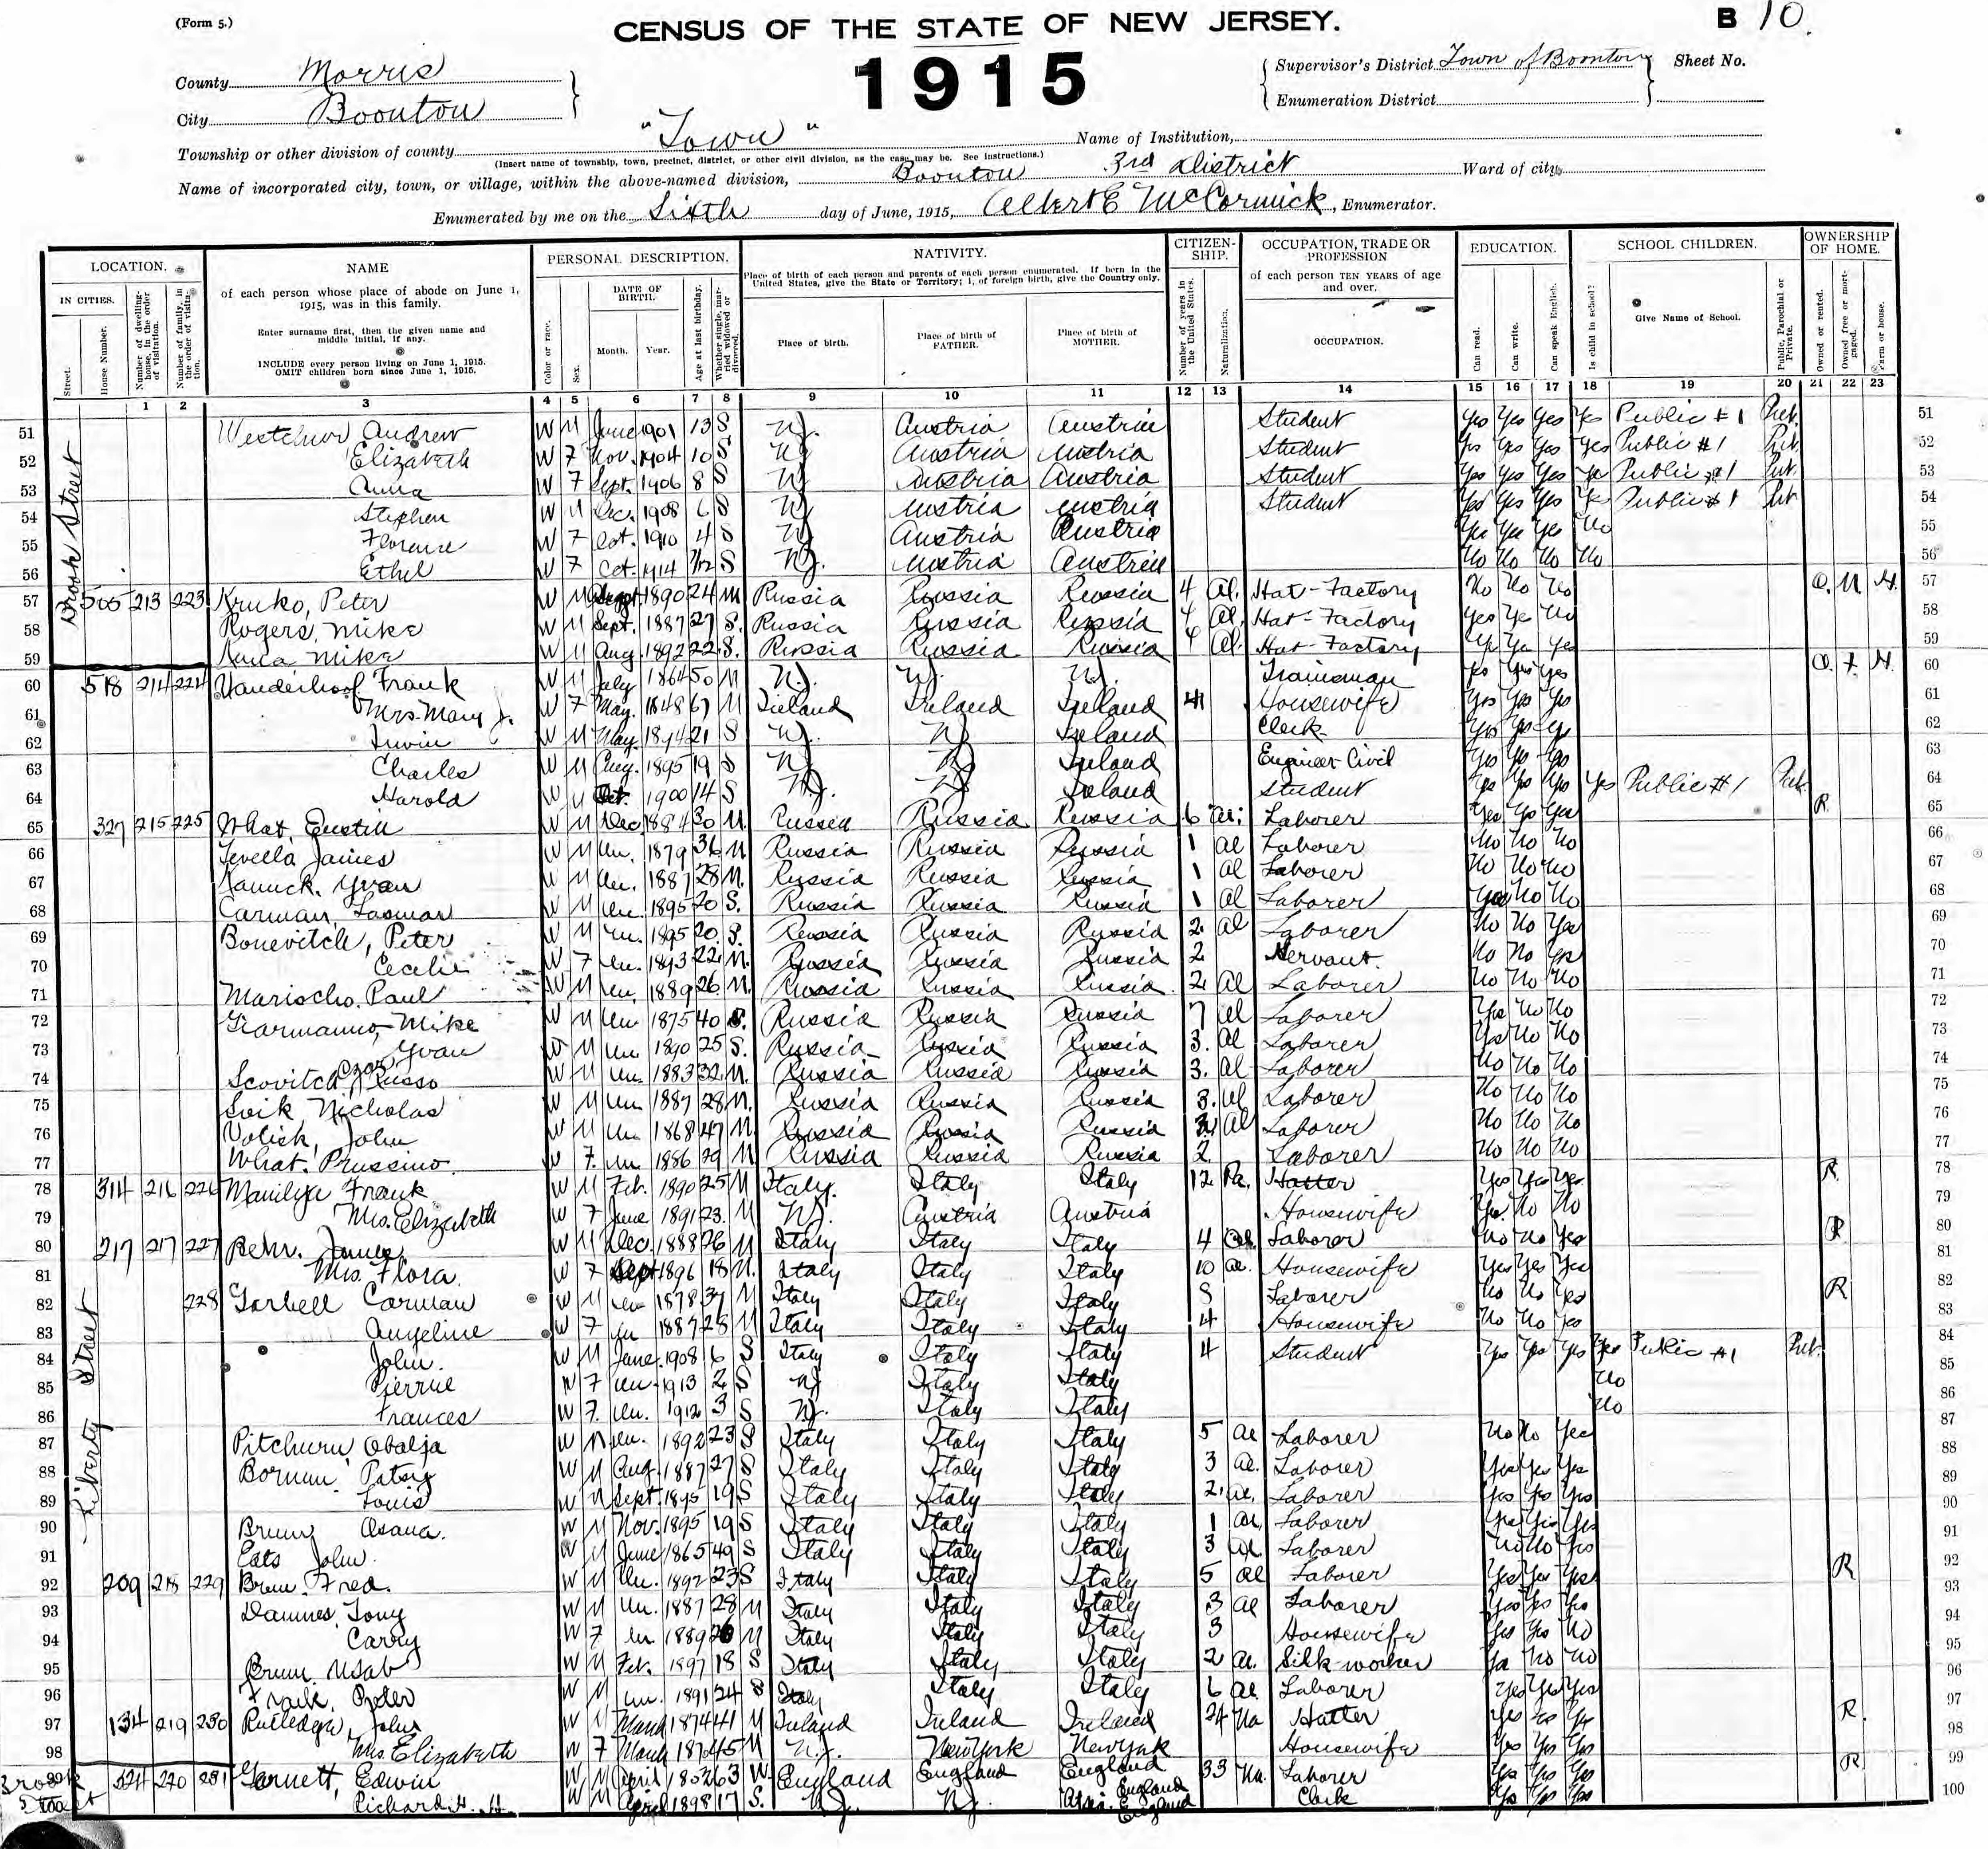 (Form 5.)
CENSUS OF THE STATE OF NEW JERSEY.
B 10.
1915
County Morris
City Boonton
Supervisor's District Town of Boonton
Sheet No.
Enumeration District
Township or other division of county "Town"
Name of Institution,
(Insert name of township, town, precinct, district, or other civil division, as the case may be. See instructions.)
Name of incorporated city, town, or village, within the above-named division, Boonton 3rd District Ward of city
Enumerated by me on the Sixth day of June, 1915, Albert E McCormick, Enumerator.
LOCATION.
IN CITIES.
Street.
House Number.
Number of dwelling-house, in the order of visitation.
Number of family, in the order of visitation.
NAME
of each person whose place of abode on June 1, 1915, was in this family.
Enter surname first, then the given name and middle initial, if any.
INCLUDE every person living on June 1, 1915.
OMIT children born since June 1, 1915.
PERSONAL DESCRIPTION.
Color or race.
Sex.
DATE OF BIRTH.
Month. Year.
Age at last birthday.
Whether single, married widowed or divorced.
NATIVITY.
Place of birth of each person and parents of each person enumerated. If born in the United States, give the State or Territory; if of foreign birth, give the Country only.
Place of birth.
Place of birth of FATHER.
Place of birth of MOTHER.
CITIZENSHIP.
Number of years in the United States.
Naturalization.
OCCUPATION, TRADE OR PROFESSION
of each person TEN YEARS of age and over.
OCCUPATION.
EDUCATION.
Can read.
Can write.
Can speak English.
SCHOOL CHILDREN.
Is child in school?
Give Name of School.
Public, Parochial or Private.
OWNERSHIP OF HOME.
Owned or rented.
Owned free or mortgaged.
Farm or house.
1 2 3 4 5 6 7 8 9 10 11 12 13 14 15 16 17 18 19 20 21 22 23
Brook Street
51 Andrew W M June 1901 13 S N.J. Austria Austria Student Yes Yes Yes Yes Public #1 Pub. 51
52 Elizabeth W F Nov. 1904 10 S NJ Austria Austria Student Yes Yes Yes Yes Public #1 Pub. 52
53 Anna W F Sept. 1906 8 S NJ Austria Austria Student Yes Yes Yes Yes Public #1 Pub. 53
54 Stephen W M Dec. 1908 6 S NJ Austria Austria Student Yes Yes Yes Yes Public #1 Pub 54
55 Florence W F Oct. 1910 4 S NJ Austria Austria Yes Yes Yes No 55
56 Ethel W F Oct. 1914 7/12 S N.J. Austria Austria No No No No 56
57 505 213 223 Kruko, Peter W M Sept. 1890 24 M Russia Russia Russia 4 Al. Hat-Factory No No No O. M H. 57
58 Rogers, Mike W M Sept. 1887 27 S. Russia Russia Russia 4 Al. Hat-Factory Yes Yes No 58
59 Mike W M Aug 1892 22 S. Russia Russia Russia 4 Al. Hat-Factory Yes Yes Yes 59
60 518 214 224 Vanderhoof Frank W M July 1864 50 M N.J. N.J. N.J. Trainman Yes Yes Yes O. F. H. 60
61 Mrs. Mary J. W F May. 1848 67 M Ireland Ireland Ireland 41 Housewife Yes Yes Yes 61
62 Irwin W M May. 1894 21 S N.J. NJ Ireland Clerk Yes Yes Yes 62
63 Charles W M Aug. 1895 19 S NJ NJ Ireland Engineer Civil Yes Yes Yes 63
64 Harold W M Oct. 1900 14 S N.J. NJ Ireland Student Yes Yes Yes Yes Public #1 Pub. 64
65 327 215 225 What, W M Dec 1884 30 M. Russia Russia Russia 6 Al. Laborer Yes Yes Yes R 65
66 James W M Un. 1879 36 M Russia Russia Russia 1 Al Laborer No No No 66
67 Yvan W M Un. 1887 28 M. Russia Russia Russia 1 Al Laborer No No No 67
68 Carman, W M Un 1895 20 S. Russia Russia Russia 1 Al Laborer Yes No No 68
69 Bonevitch, Peter W M Un. 1895 20 S. Russia Russia Russia 2. Al Laborer No No Yes 69
70 Cecelia W F Un. 1893 22 M. Russia Russia Russia 2 Servant. No No Yes 70
71 Marischo. Paul W M Un. 1889 26 M. Russia Russia Russia 2 Al Laborer No No No 71
72 Mike W M Un 1875 40 S. Russia Russia Russia 7 Al Laborer Yes No No 72
73 Yvan W M Un 1890 25 S. Russia Russia Russia 3. Al Laborer Yes No No 73
74 Scovitch, Russo W M Un. 1883 32 M. Russia Russia Russia 3. Al Laborer No No No 74
75 Soik, Nicholas W M Un 1887 28 M. Russia Russia Russia 3. Al Laborer No No No 75
76 Volick, John W M Un 1868 47 M Russia Russia Russia Al Laborer No No No 76
77 What. Prussino. W F. Un 1886 29 M Russia Russia Russia 2. Laborer No No No 77
78 314 216 226 Frank W M Feb. 1890 25 M Italy. Italy Italy 12 Pa. Hatter Yes Yes Yes R 78
79 Mrs. Elizabeth W F June 1891 23. M N.J. Austria Austria Housewife Yes. No No 79
80 217 217 227 James. W M Dec. 1888 26 M Italy Italy Italy 4 Al. Laborer No No Yes R 80
81 Mrs. Flora. W F Sept 1896 18 M. Italy Italy Italy 10 Al. Housewife Yes Yes Yes 81
Liberty Street
82 228 Carman W M Un 1878 37 M Italy Italy Italy Laborer No No Yes R 82
83 Angeline W F Un 1887 28 M Italy Italy Italy 4 Housewife No No Yes 83
84 John. W M June. 1908 6 S Italy Italy Italy 4 Student Yes Yes Yes Yes Public #1 Pub. 84
85 W F Un 1913 2 S NJ Italy Italy No 85
86 Frances W F. Un. 1912 3 S N.J. Italy Italy No 86
87 W M Un. 1892 23 S Italy Italy Italy 5 Al Laborer No No Yes 87
88 Patsy W M Aug. 1887 27 S Italy Italy Italy 3 Al. Laborer Yes Yes Yes 88
89 Louis W M Sept. 1895 19 S Italy Italy Italy 2. Al. Laborer Yes Yes Yes 89
90 W M Nov. 1895 19 S Italy Italy Italy 1 Al. Laborer Yes Yes Yes 90
91 John. W M June 1865 49 S Italy Italy Italy 3 Al Laborer No No Yes 91
92 209 218 229 Fred. W M Un. 1892 23 S Italy Italy Italy 5 Al Laborer Yes Yes Yes R 92
93 Tony W M Un. 1887 28 M Italy Italy Italy 3 Al Laborer Yes Yes Yes 93
94 Carry W F Un 1889 26 M Italy Italy Italy 3 Housewife Yes Yes No 94
95 W M Feb. 1897 18 S Italy Italy Italy 2 Al. Silk-worker Ya No No 95
96 Peter W M Un. 1891 24 S Italy Italy Italy 6 Al Laborer Yes Yes Yes 96
97 134 219 230 Rutledge, John W M March 1874 41 M Ireland Ireland Ireland 24 Na Hatter Yes Yes Yes R. 97
98 Mrs. Elizabeth W F March 1870 45 M N.J. New York New York Housewife Yes Yes Yes 98
Brook Street
99 524 220 231 Garnett, Edwin W M April 1852 63 W. England England England 33 Na. Laborer Yes Yes Yes R 99
100 Richard H. W M April 1898 17 S. N.J. N.J. England Clerk Yes Yes Yes 100